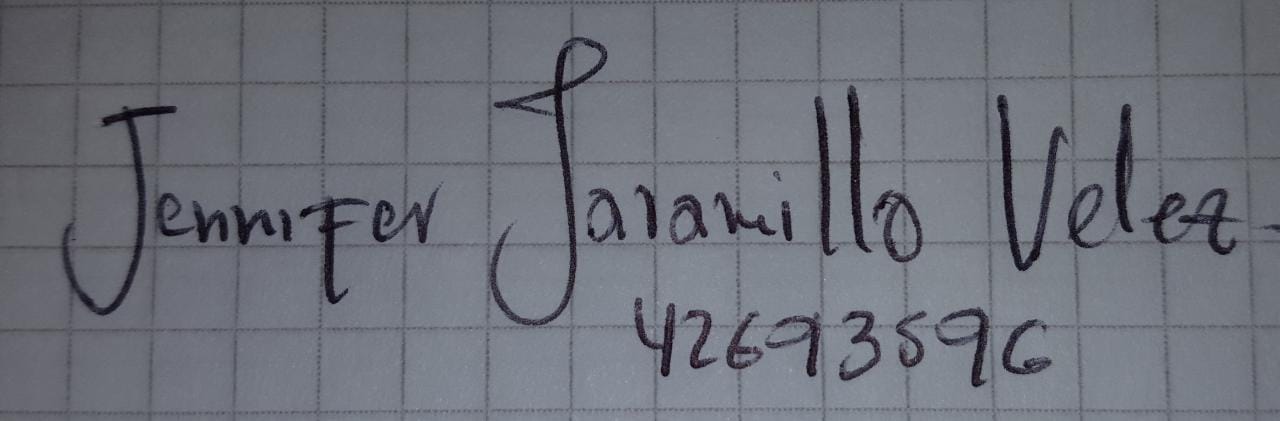 Jennifer Jaramillo Velez.
42693596